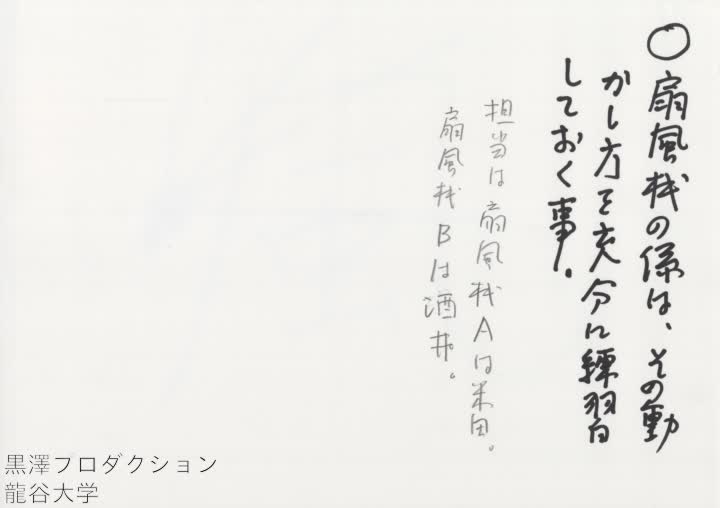 ○扇風機の係は、その動
かし方を充分に練習
しておく事。
担当は扇風機Aは米田。
扇風機Bは酒井。
黒澤プロダクション
龍谷大学